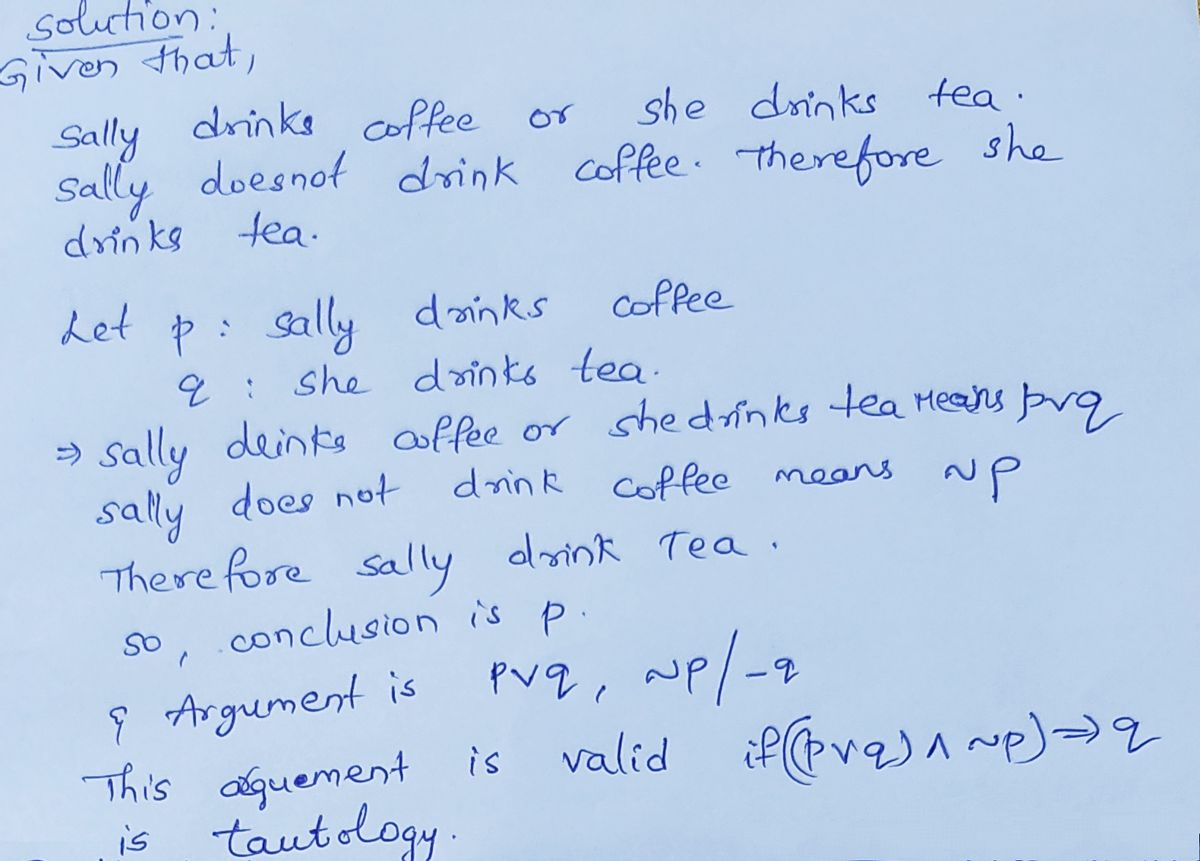 solution:
Given that,
Sally drinks coffee or she drinks tea.
Sally doesnot drink coffee. Therefore she
drinks tea.
Let p : sally drinks coffee
q : she drinks tea.
⇒ sally deinks coffee or she drinks tea Means p∨q
sally does not drink coffee means ~p
Therefore sally drink Tea.
so, conclusion is p.
& Argument is p∨q, ~p/-q
This arguement is valid if((p∨q) ∧ ~p)⇒q
is tautology.